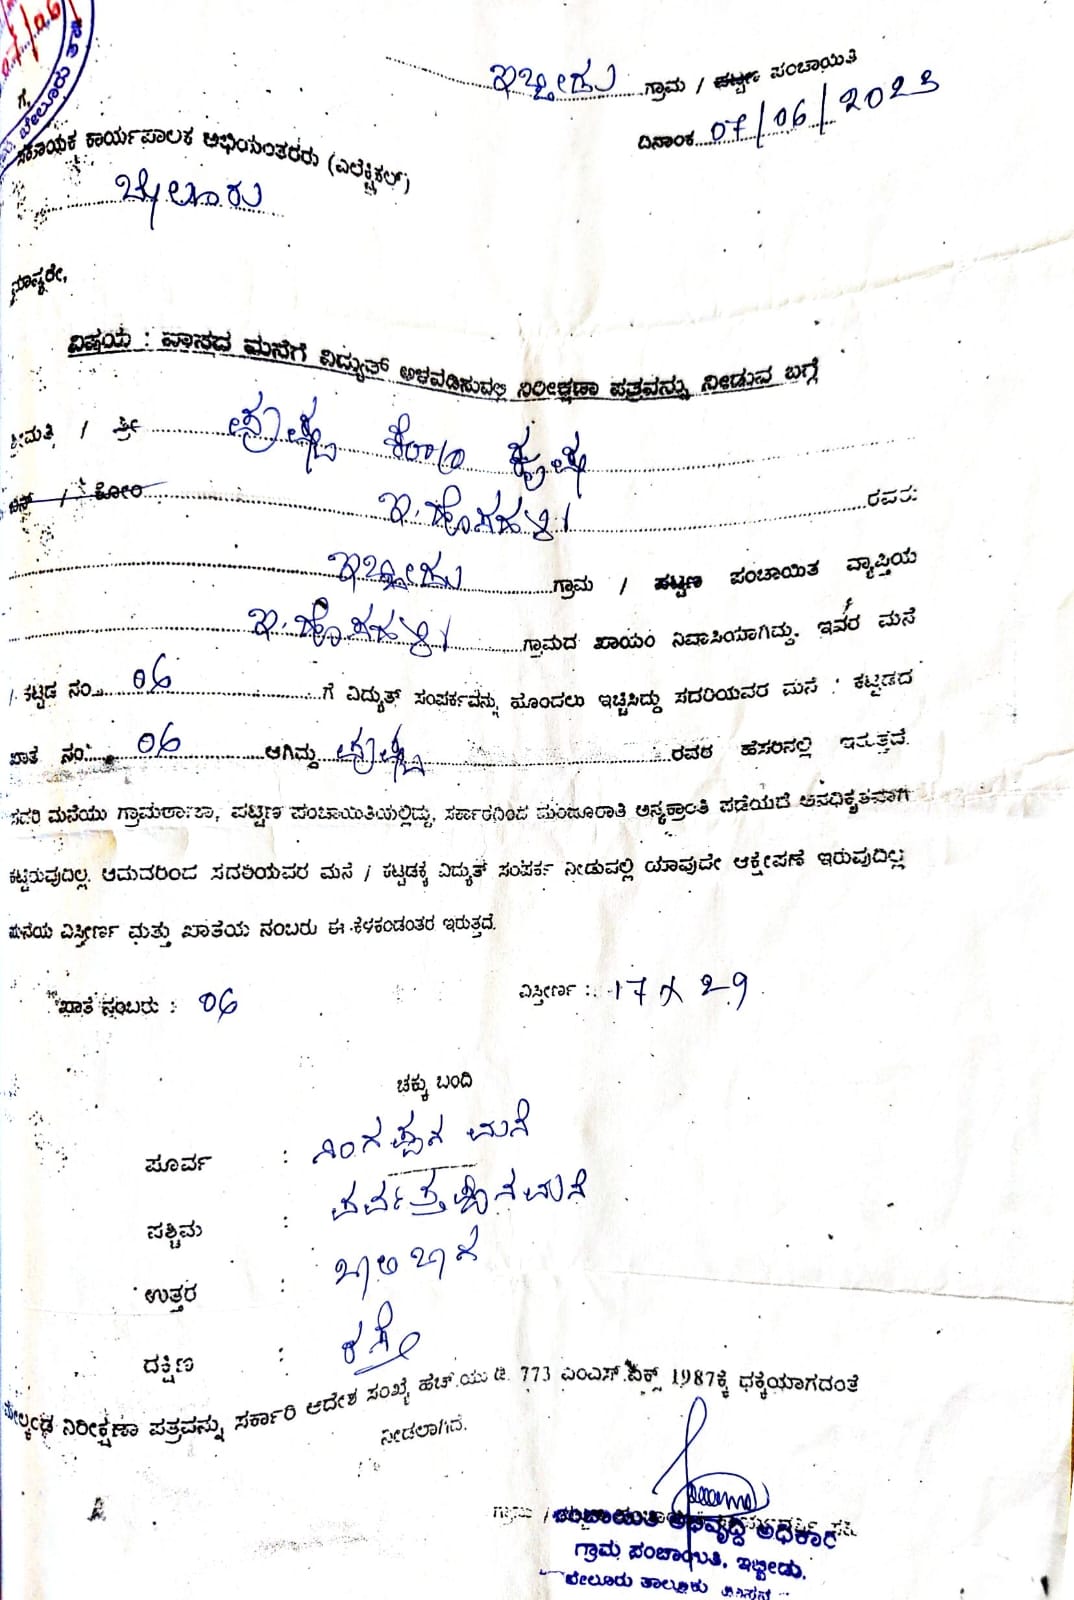 07/06/
ಬೇಲೂರು ತಾ
ಇಬ್ಬೀಡು ಗ್ರಾಮ / ಪಟ್ಟಣ ಪಂಚಾಯಿತಿ
ದಿನಾಂಕ 07/06/2023
ಗೆ,
ಸಹಾಯಕ ಕಾರ್ಯಪಾಲಕ ಅಭಿಯಂತರರು (ಎಲೆಕ್ಟ್ರಿಕಲ್)
ಬೇಲೂರು
ಮಾನ್ಯರೇ,
ವಿಷಯ : ವಾಸದ ಮನೆಗೆ ವಿದ್ಯುತ್ ಅಳವಡಿಸುವಲ್ಲಿ ನಿರೀಕ್ಷಣಾ ಪತ್ರವನ್ನು ನೀಡುವ ಬಗ್ಗೆ
ಶ್ರೀಮತಿ / ಶ್ರೀ ಪುಷ್ಪ ಕೋಂ ಕೃಷ್ಣ
ಬಿನ್ / ಕೋಂ ಇ.ಹೊಸಹಳ್ಳಿ ರವರು
ಇಬ್ಬೀಡು ಗ್ರಾಮ / ಪಟ್ಟಣ ಪಂಚಾಯಿತ ವ್ಯಾಪ್ತಿಯ
ಇ.ಹೊಸಹಳ್ಳಿ ಗ್ರಾಮದ ಖಾಯಂ ನಿವಾಸಿಯಾಗಿದ್ದು, ಇವರ ಮನೆ
/ ಕಟ್ಟಡ ನಂ. 06 ಗೆ ವಿದ್ಯುತ್ ಸಂಪರ್ಕವನ್ನು ಹೊಂದಲು ಇಚ್ಚಿಸಿದ್ದು ಸದರಿಯವರ ಮನೆ / ಕಟ್ಟಡದ
ಖಾತೆ ನಂ. 06 ಆಗಿದ್ದು ಪುಷ್ಪ ರವರ ಹೆಸರಿನಲ್ಲಿ ಇರುತ್ತದೆ.
ಸದರಿ ಮನೆಯು ಗ್ರಾಮಠಾಣಾ, ಪಟ್ಟಣ ಪಂಚಾಯಿತಿಯಲ್ಲಿದ್ದು, ಸರ್ಕಾರದಿಂದ ಮಂಜೂರಾತಿ ಅನ್ಯಕ್ರಾಂತಿ ಪಡೆಯದೆ ಅನಧಿಕೃತವಾಗಿ
ಕಟ್ಟಿರುವುದಿಲ್ಲ. ಆದುದರಿಂದ ಸದರಿಯವರ ಮನೆ / ಕಟ್ಟಡಕ್ಕೆ ವಿದ್ಯುತ್ ಸಂಪರ್ಕ ನೀಡುವಲ್ಲಿ ಯಾವುದೇ ಆಕ್ಷೇಪಣೆ ಇರುವುದಿಲ್ಲ
ಮನೆಯ ವಿಸ್ತೀರ್ಣ ಮತ್ತು ಖಾತೆಯ ನಂಬರು ಈ ಕೆಳಕಂಡಂತರ ಇರುತ್ತದೆ.
ಖಾತೆ ನಂಬರು : 06 ವಿಸ್ತೀರ್ಣ : 17 X 29
ಚಕ್ಕು ಬಂದಿ
ಪೂರ್ವ : ನಿಂಗಪ್ಪನ ಮನೆ
ಪಶ್ಚಿಮ : ಮನೆ
ಉತ್ತರ : ಖಾಲಿ ಜಾಗ
ದಕ್ಷಿಣ : ರಸ್ತೆ
ಮೇಲ್ಕಂಡ ನಿರೀಕ್ಷಣಾ ಪತ್ರವನ್ನು ಸರ್ಕಾರಿ ಆದೇಶ ಸಂಖ್ಯೆ ಹೆಚ್.ಯು.ಡಿ. 773 ಎಂಎನ್ಎಕ್ಸ್ 1987ಕ್ಕೆ ಧಕ್ಕೆಯಾಗದಂತೆ
ನೀಡಲಾಗಿದೆ.
ಪಂಚಾಯತಿ ಅಭಿವೃದ್ಧಿ ಅಧಿಕಾರಿ
ಗ್ರಾಮ ಪಂಚಾಯಿತಿ, ಇಬ್ಬೀಡು,
ಬೇಲೂರು ತಾಲ್ಲೂಕು ಹಾಸನ